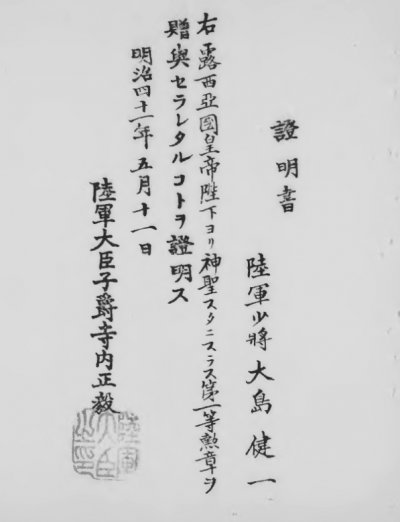 證明書
陸軍少將 大島健一
右ハ露西亞國皇帝陛下ヨリ神聖スタニスラス第一等勲章ヲ
贈與セラレタルコトヲ證明ス
明治四十一年五月十一日
陸軍大臣子爵寺内正毅
陸軍
大臣
之印